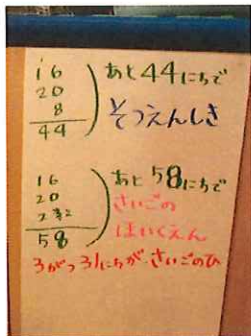 16
20
8
44
あと44にちで
そつえんしき
16
20
22
58
あと58にちで
さいごの
ほいくえん
3がつ31にちが、さいごのひ